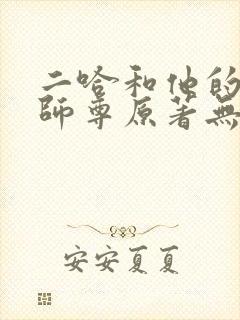 二哈和他的
師尊原著無
安安夏夏